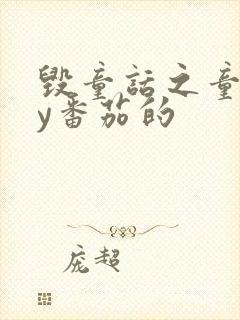 毁童话之童
y番茄的
庞超